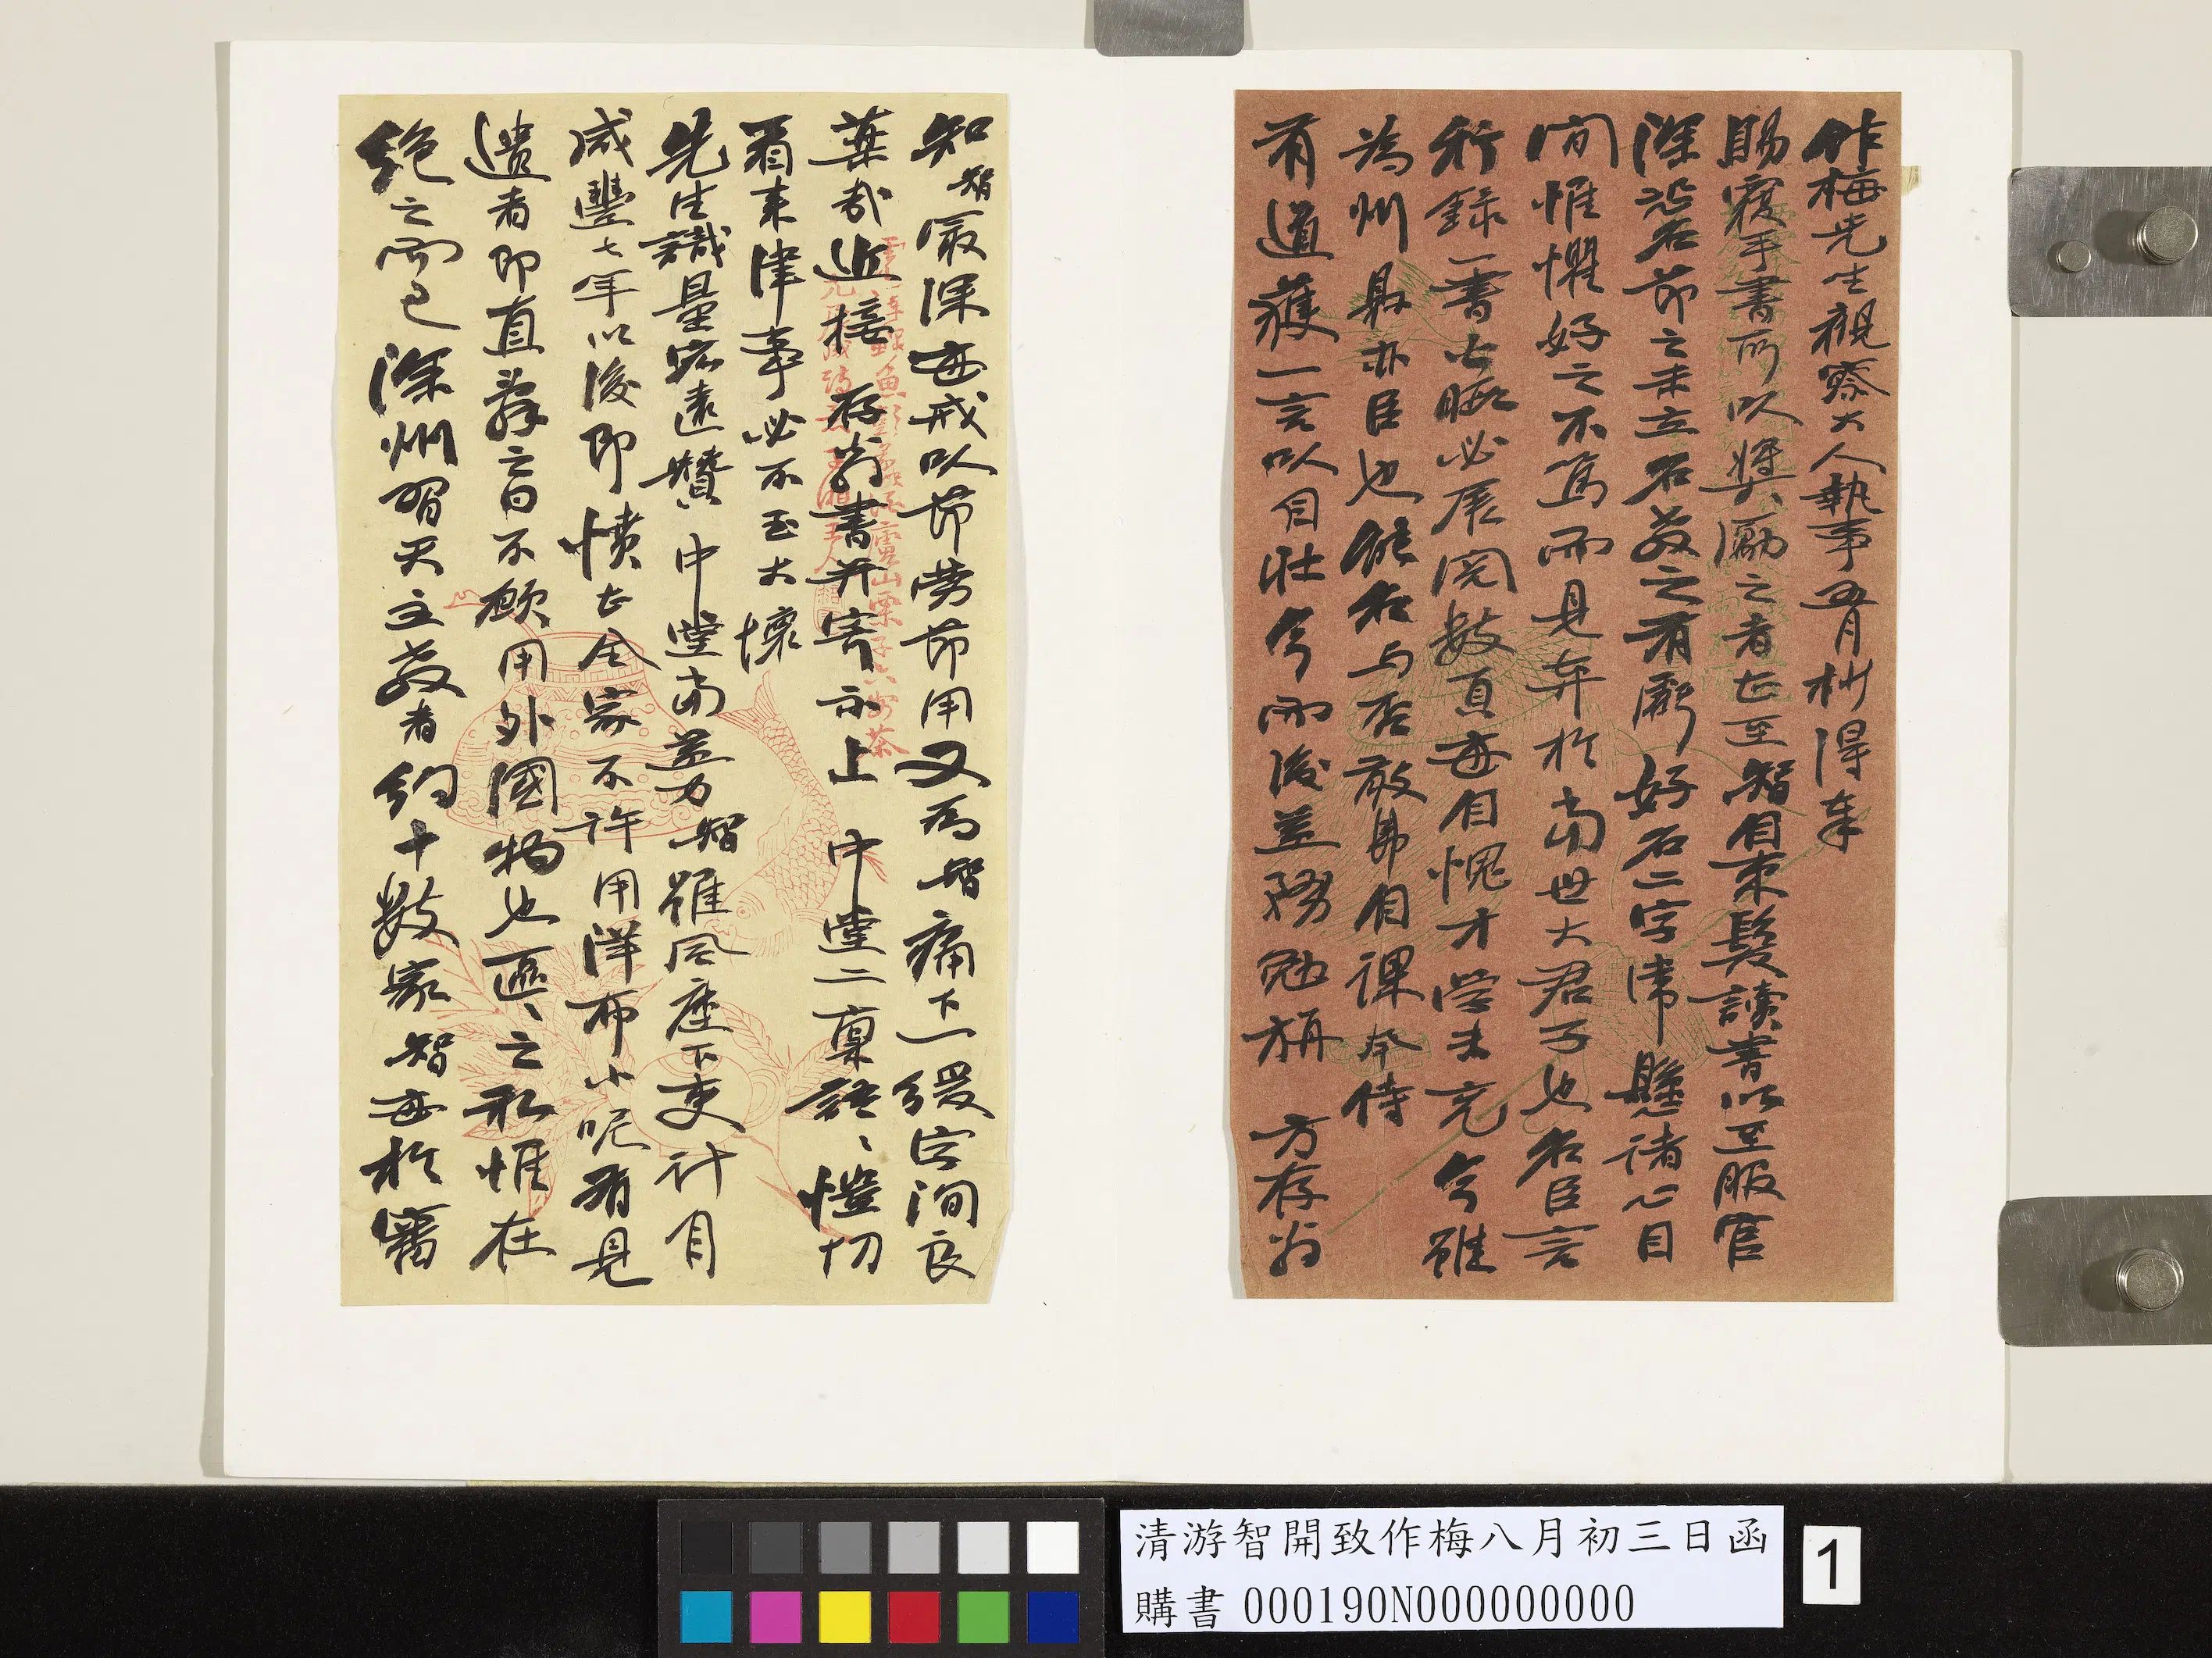 作梅先生觀察大人執事五月杪得奉
賜覆手書所以獎勵之者甚至智自束髮讀書以至服官
深沿名節之未立名教之有虧好名二字常懸諸心目
間惟懼好之不篤而見弃於當世大君子也名臣言
行錄一書公暇必展閱數頁每自愧才學未充今雖
為州縣亦臣也能名與否敢弗自課今侍
有道獲一言以自壯今而後益務勉旃 方存翁
知智最深每戒以節勞節用又為智痛下一緩字洵良
藥哉近接存翁書并寄示上 中堂二稟語、愷切
看來津事必不至大壞
先生識量宏遠贊 中堂當益力智雖風塵下吏計自
咸豐七年以後即憤甚全家不許用洋布小呢有見
遺者即直辭之曰不願用外國物也區、之私惟在
絕之而已深州習天主教者約十數家智每於審
清游智開致作梅八月初三日函
購書 000190N000000000
1